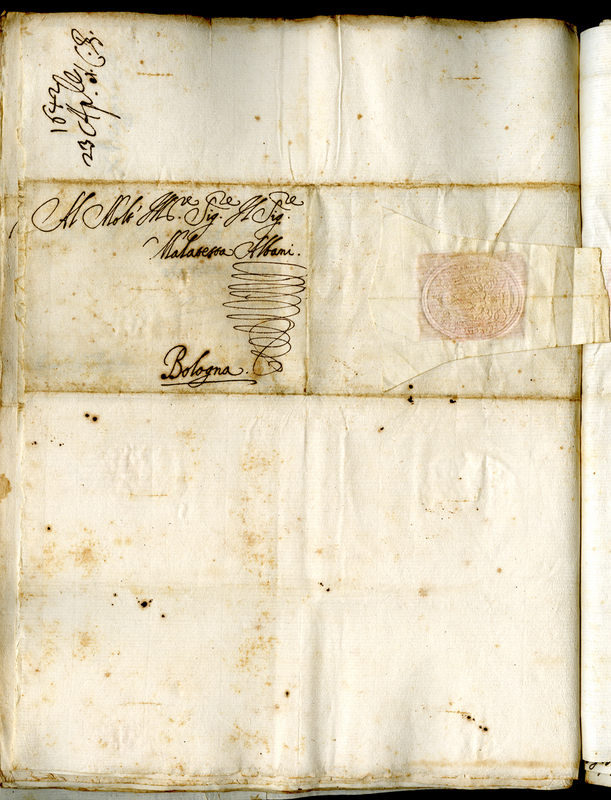 1642
23 Ap.le
Al Molt' Ill.re Sig.re Il Sig.re
Malatessa Albani.
Bologna.